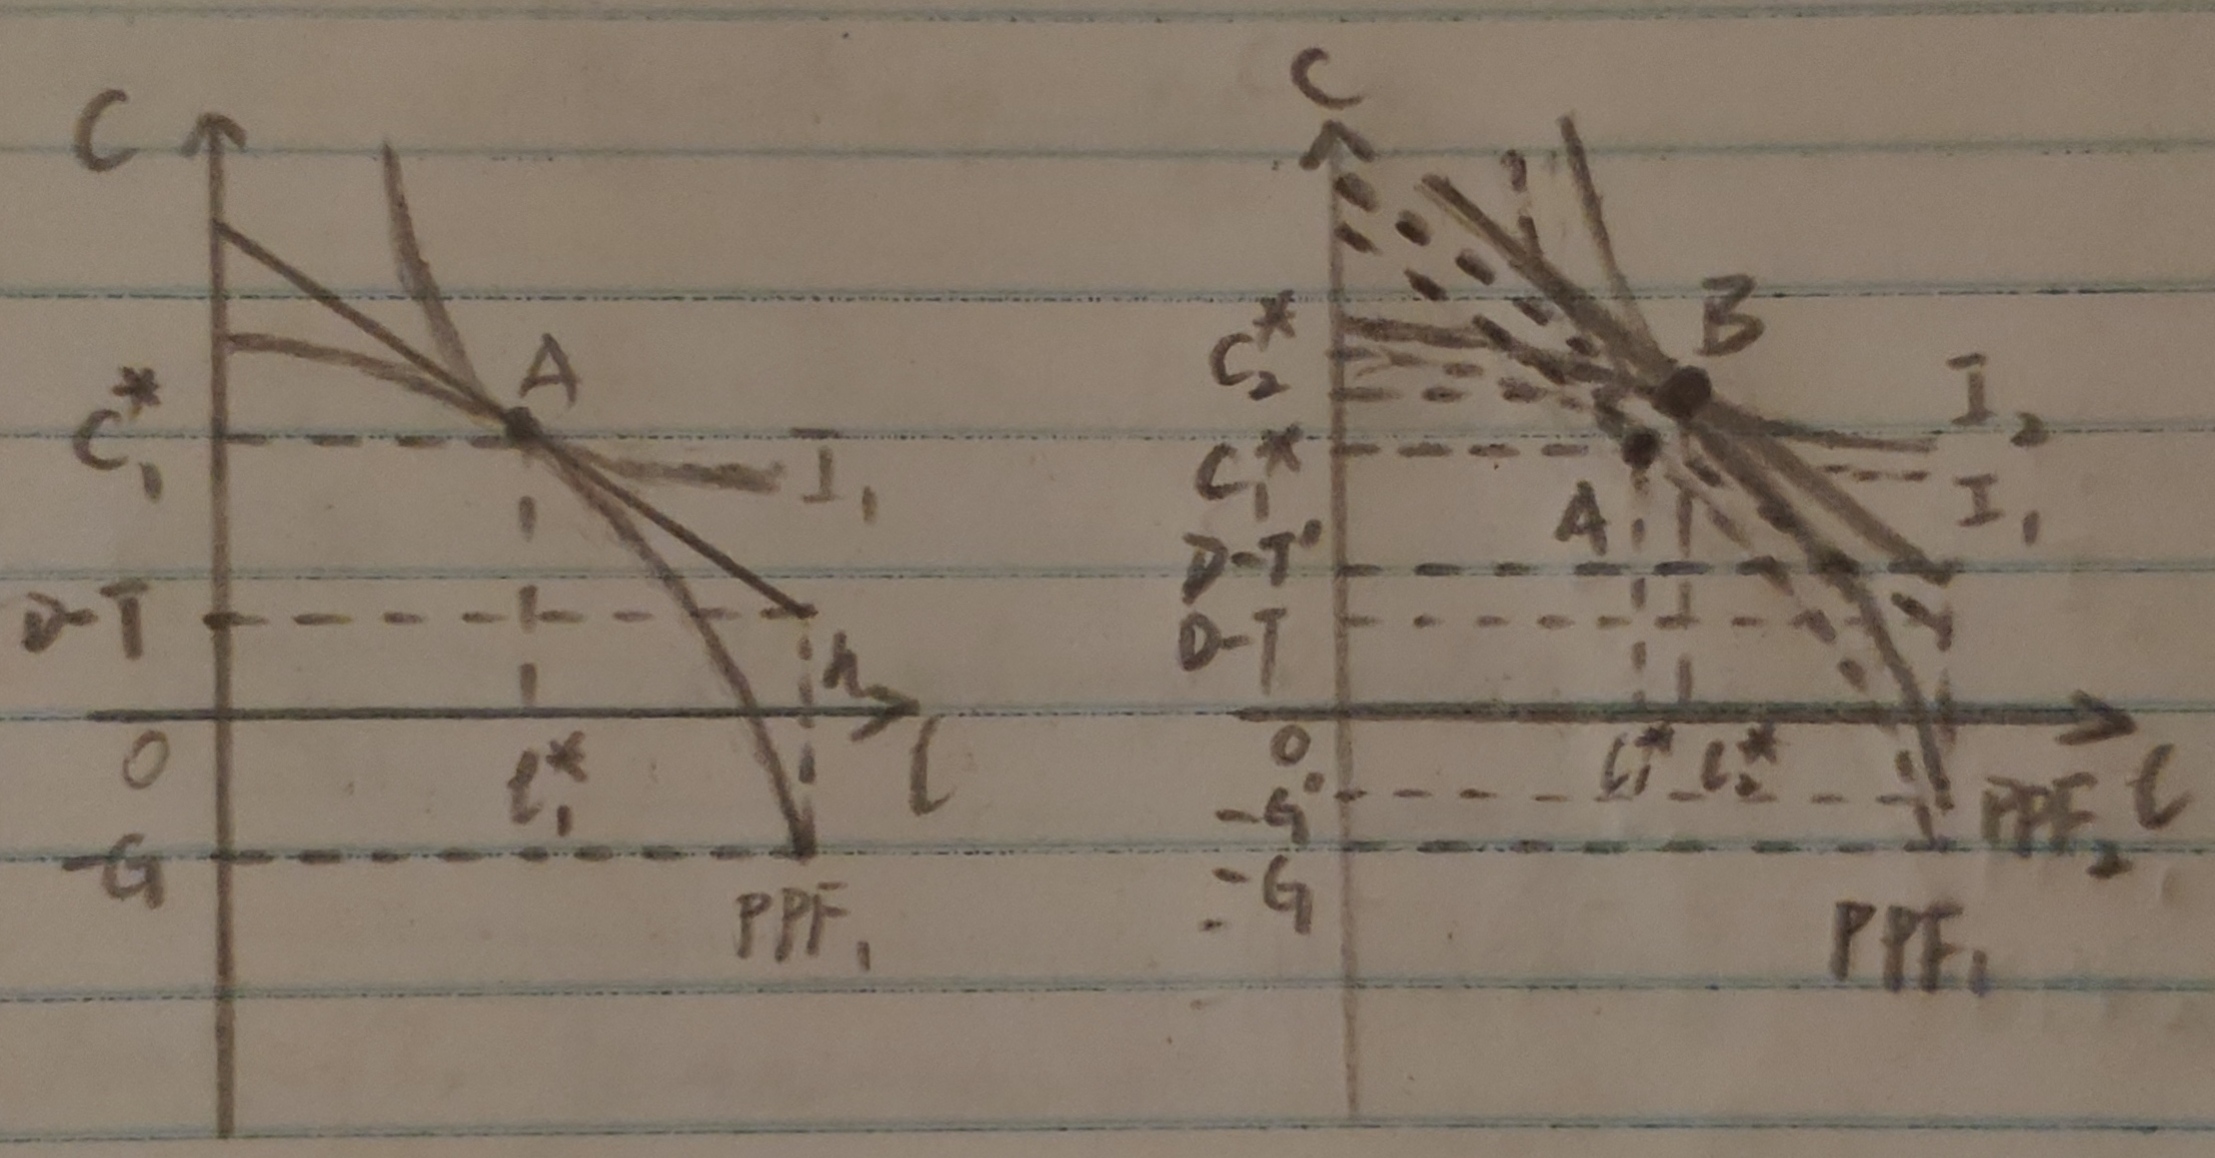 C
A
C₁*
I₁
D-T
h
0
l₁*
l
-G
PPF₁
C
B
C₂*
I₂
C₁*
I₁
A
D-T'
D-T
0
l₁* l₂*
l
-G'
PPF₂
-G
PPF₁